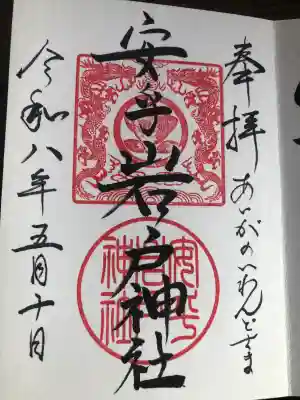 奉拝 あいがのいわんどさま
安乎岩戸神社
令和八年五月十日